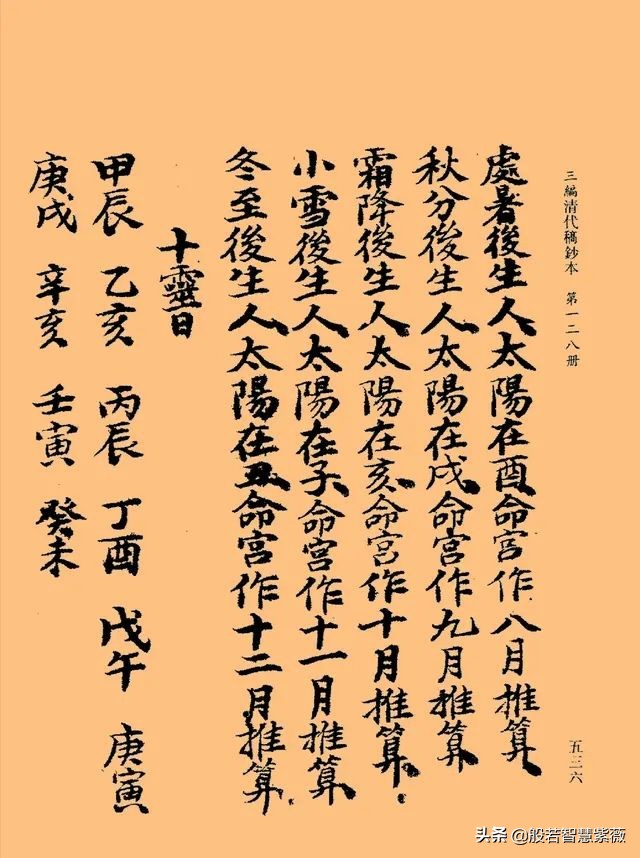 三編清代稿鈔本　第一二八册
五三六
處暑後生人太陽在酉命宮作八月推算
秋分後生人太陽在戌命宮作九月推算
霜降後生人太陽在亥命宮作十月推算
小雪後生人太陽在子命宮作十一月推算
冬至後生人太陽在丑命宮作十二月推算
十靈日
甲辰　乙亥　丙辰　丁酉　戊午　庚寅
庚戌　辛亥　壬寅　癸未
头条 @般若智慧紫薇